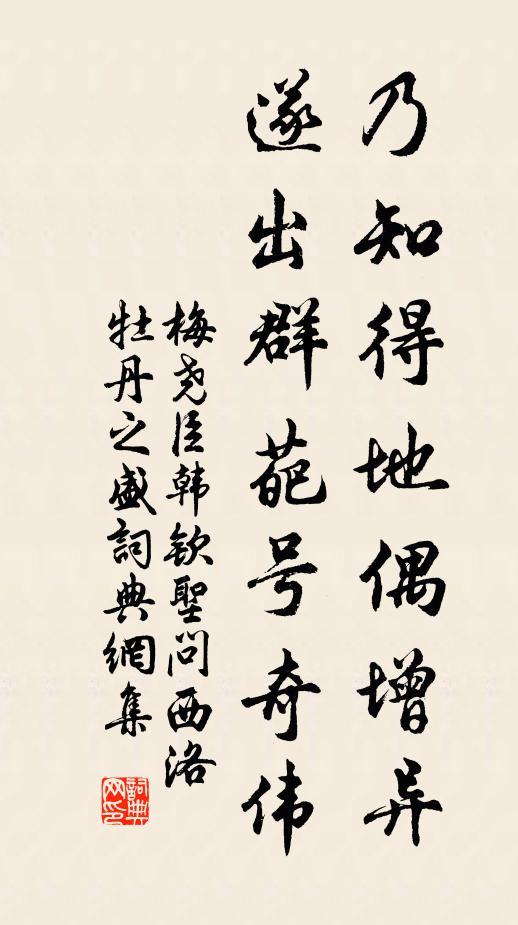 乃知得地偶增异
遂出群葩号奇伟
梅尧臣韩钦聖问西洛
牡丹之盛詞典網集
詞典网印